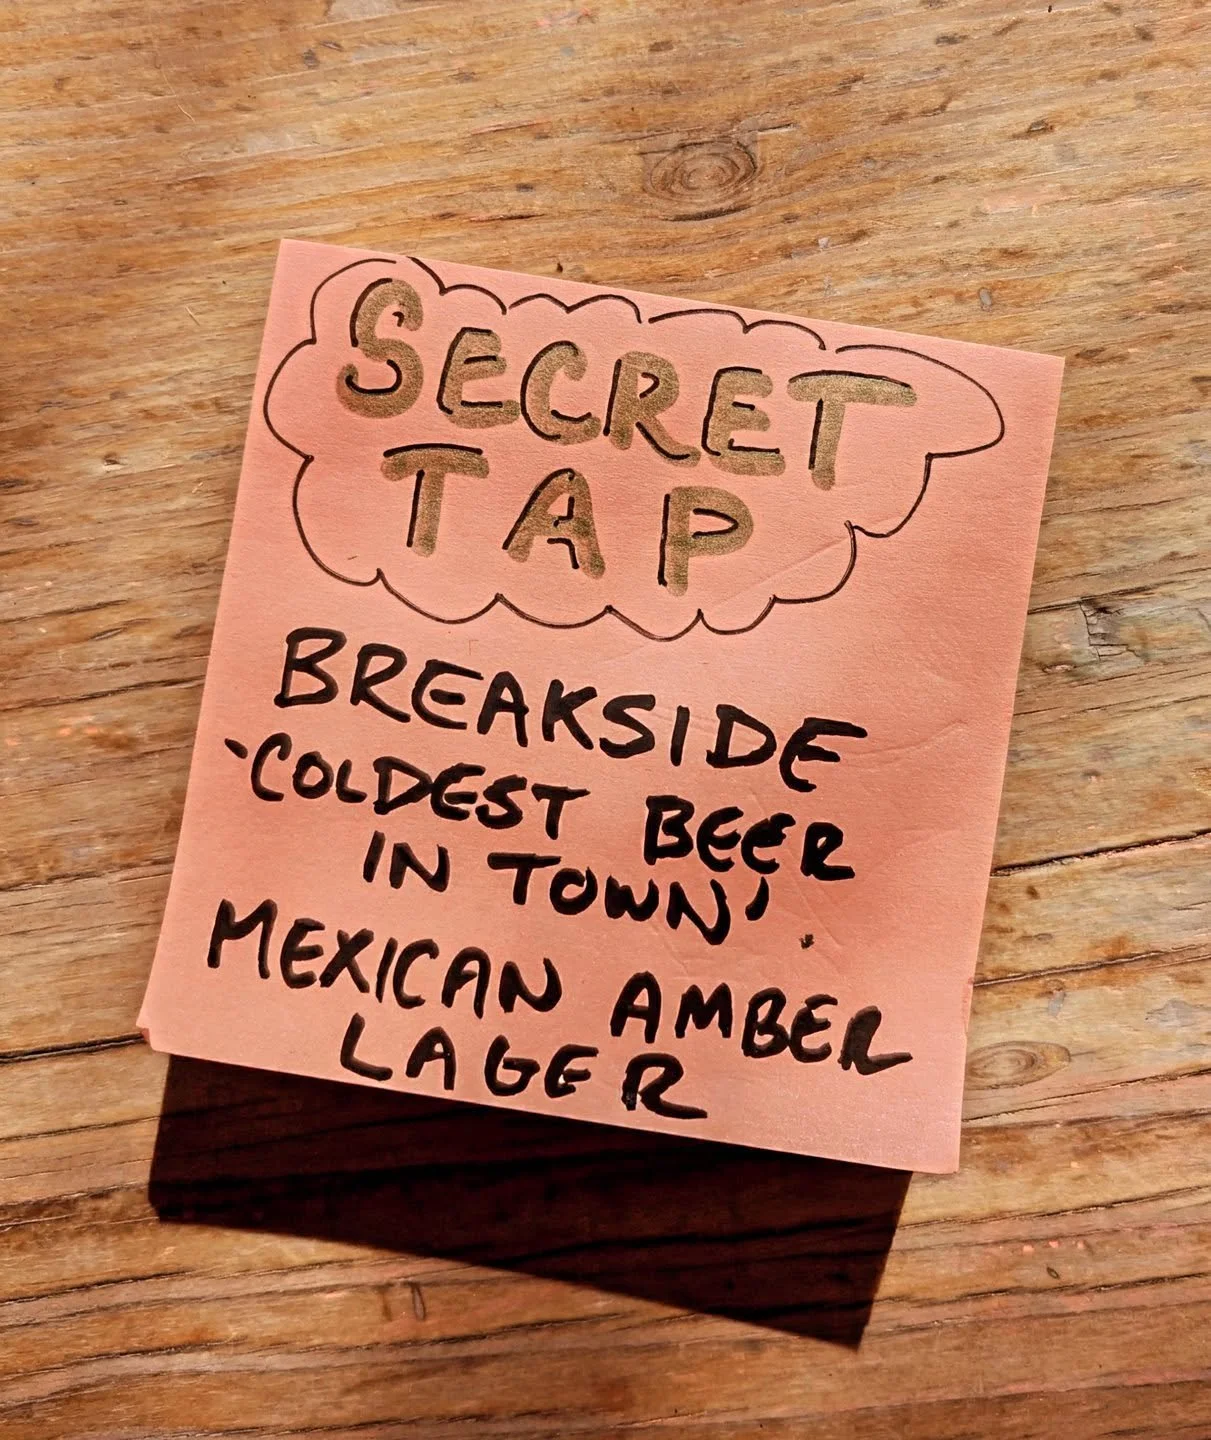 SECRET
TAP
BREAKSIDE
'COLDEST BEER
IN TOWN'
MEXICAN AMBER
LAGER